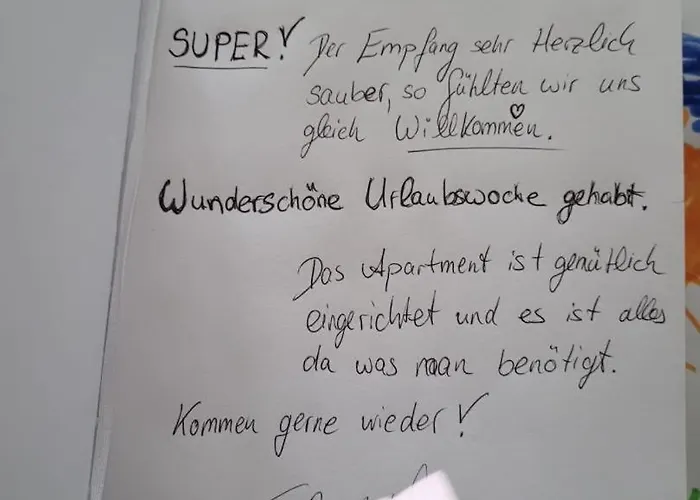 SUPER! Der Empfang sehr Herzlich
sauber, so fühlten wir uns
gleich Willkommen.
Wunderschöne Urlaubswoche gehabt.
Das Apartment ist gemütlich
eingerichtet und es ist alles
da was man benötigt.
Kommen gerne wieder!